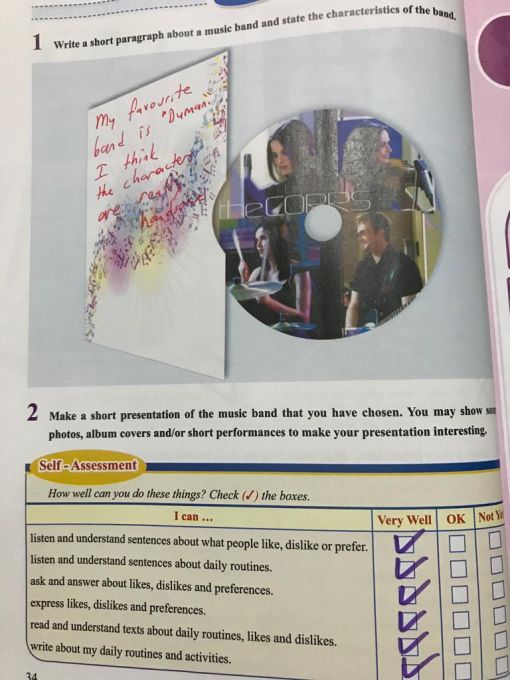 1 Write a short paragraph about a music band and state the characteristics of the band.
My favourite
band is "Duman."
I think
the characters
are really
handsome
the CORRS
2 Make a short presentation of the music band that you have chosen. You may show
photos, album covers and/or short performances to make your presentation interesting.
Self - Assessment
How well can you do these things? Check (✓) the boxes.
I can ... Very Well OK Not
listen and understand sentences about what people like, dislike or prefer.
listen and understand sentences about daily routines.
ask and answer about likes, dislikes and preferences.
express likes, dislikes and preferences.
read and understand texts about daily routines, likes and dislikes.
write about my daily routines and activities.
34